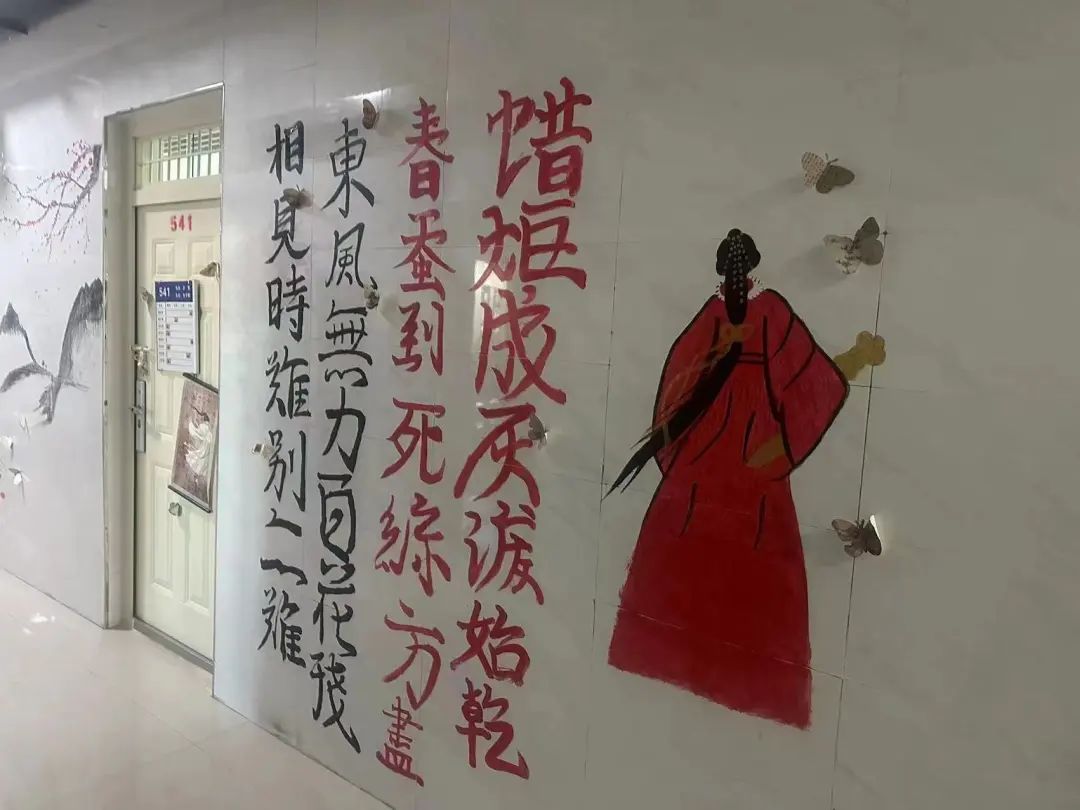 541
541
相見時難别亦難
東風無力百花殘
春蚕到死絲方盡
蜡炬成灰淚始乾